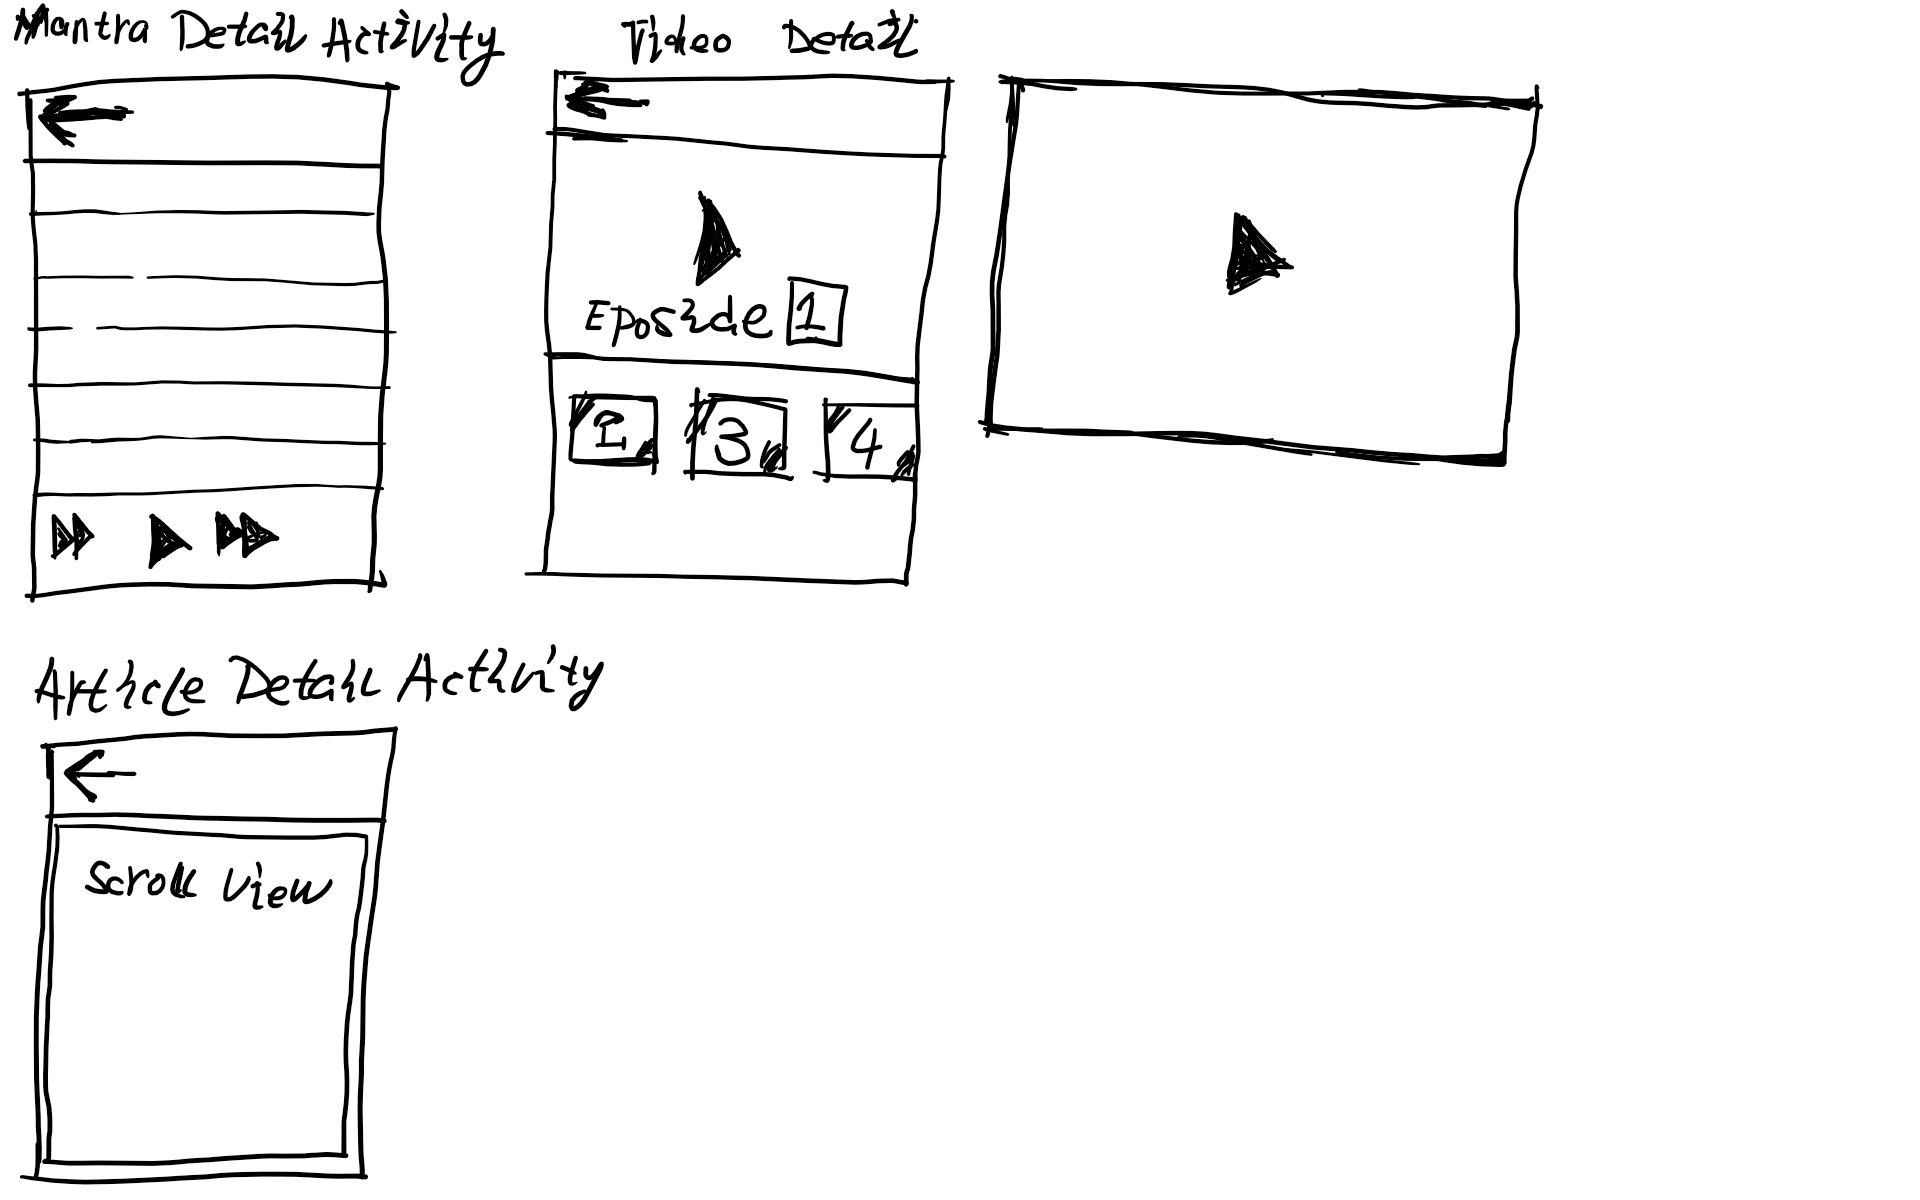 Mantra Detail Activity
Video Detail
Eposide 1
2 3 4
Article Detail Activity
Scroll View